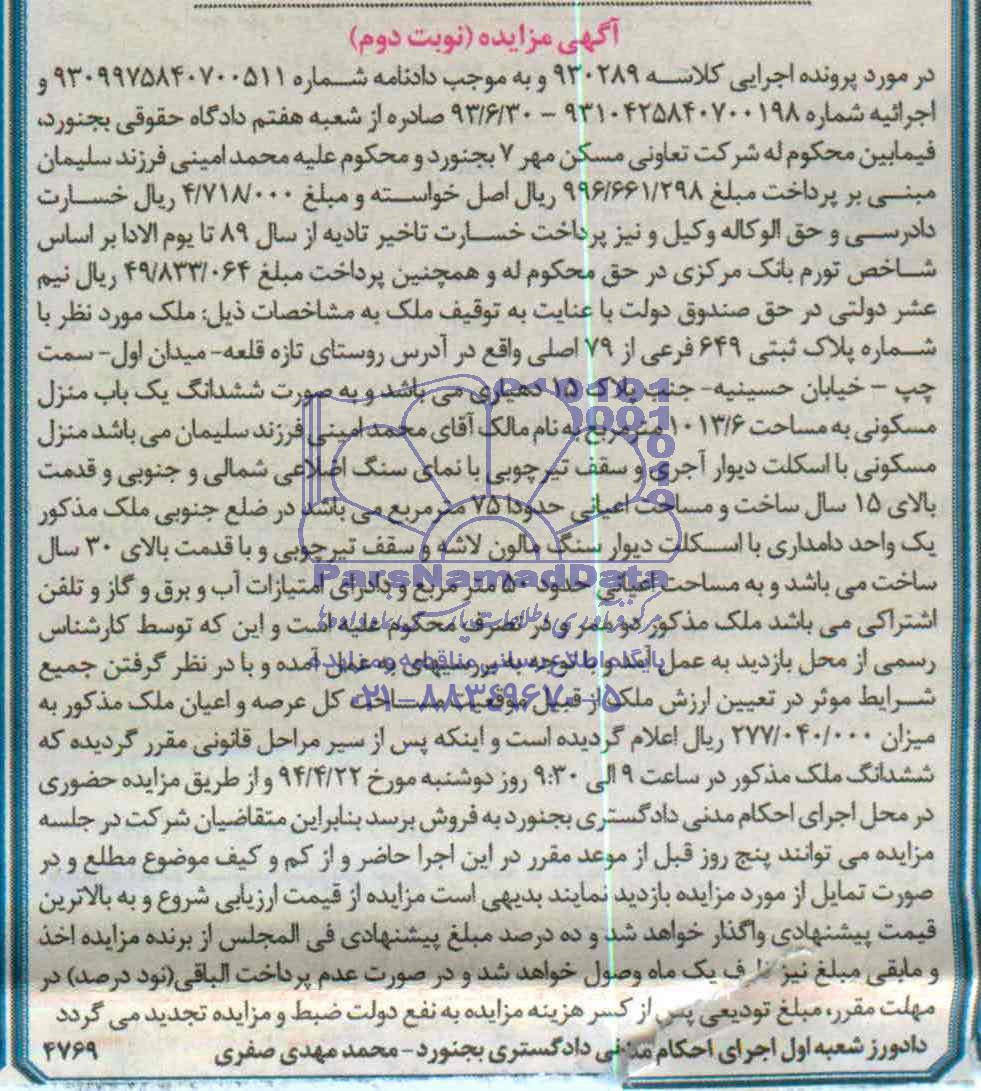 آگهی مزایده (نوبت دوم)
در مورد پرونده اجرایی کلاسه ۹۳۰۲۸۹ و به موجب دادنامه شماره ۹۳۰۹۹۷۵۸۴۰۷۰۰۵۱۱ و
اجرائیه شماره ۹۳۱۰۴۲۵۸۴۰۷۰۰۱۹۸ – ۹۳/۶/۳۰ صادره از شعبه هفتم دادگاه حقوقی بجنورد،
فیمابین محکوم له شرکت تعاونی مسکن مهر ۷ بجنورد و محکوم علیه محمد امینی فرزند سلیمان
مبنی بر پرداخت مبلغ ۹۹۶/۶۶۱/۲۹۸ ریال اصل خواسته و مبلغ ۴/۷۱۸/۰۰۰ ریال خسارت
دادرسی و حق الوکاله وکیل و نیز پرداخت خسارت تاخیر تادیه از سال ۸۹ تا یوم الادا بر اساس
شاخص تورم بانک مرکزی در حق محکوم له و همچنین پرداخت مبلغ ۴۹/۸۳۳/۰۶۴ ریال نیم
عشر دولتی در حق صندوق دولت با عنایت به توقیف ملک به مشاخصات ذیل: ملک مورد نظر با
شماره پلاک ثبتی ۶۴۹ فرعی از ۷۹ اصلی واقع در آدرس روستای تازه قلعه- میدان اول- سمت
چپ – خیابان حسینیه- جنب پلاک ۱۵ دهیاری می باشد و به صورت ششدانگ یک باب منزل
مسکونی به مساحت ۱۰۱۳/۶ مترمربع به نام مالک آقای محمد امینی فرزند سلیمان می باشد منزل
مسکونی با اسکلت دیوار آجری و سقف تیرچوبی با نمای سنگ اضلاعی شمالی و جنوبی و قدمت
بالای ۱۵ سال ساخت و مساحت اعیانی حدودا ۷۵ مترمربع می باشد در ضلع جنوبی ملک مذکور
یک واحد دامداری با اسکلت دیوار سنگ مالون لاشه و سقف تیرچوبی و با قدمت بالای ۳۰ سال
ساخت می باشد و به مساحت اعیانی حدود ۵۰ متر مربع و بادارای امتیازات آب و برق و گاز و تلفن
اشتراکی می باشد ملک مذکور دو ممر و در تصرف محکوم علیه است و این که توسط کارشناس
رسمی از محل بازدید به عمل آمده و با توجه به بررسیهای به عمل آمده و با در نظر گرفتن جمیع
شرایط موثر در تعیین ارزش ملک از قبیل موقعیت مساحت کل عرصه و اعیان ملک مذکور به
میزان ۲۷۷/۰۴۰/۰۰۰ ریال اعلام گردیده است و اینکه پس از سیر مراحل قانونی مقرر گردیده که
ششدانگ ملک مذکور در ساعت ۹ الی ۹:۳۰ روز دوشنبه مورخ ۹۴/۴/۲۲ و از طریق مزایده حضوری
در محل اجرای احکام مدنی دادگستری بجنورد به فروش برسد بنابراین متقاضیان شرکت در جلسه
مزایده می توانند پنج روز قبل از موعد مقرر در این اجرا حاضر و از کم و کیف موضوع مطلع و در
صورت تمایل از مورد مزایده بازدید نمایند بدیهی است مزایده از قیمت ارزیابی شروع و به بالاترین
قیمت پیشنهادی واگذار خواهد شد و ده درصد مبلغ پیشنهادی فی المجلس از برنده مزایده اخذ
و مابقی مبلغ نیز ظرف یک ماه وصول خواهد شد و در صورت عدم پرداخت الباقی(نود درصد) در
مهلت مقرر، مبلغ تودیعی پس از کسر هزینه مزایده به نفع دولت ضبط و مزایده تجدید می گردد
دادورز شعبه اول اجرای احکام مدنی دادگستری بجنورد - محمد مهدی صفری ۴۷۶۹
ParsNamadData
پایگاه اطلاع رسانی مناقصه و مزایده
۰۲۱-۸۸۳۴۹۶۷۰-۵